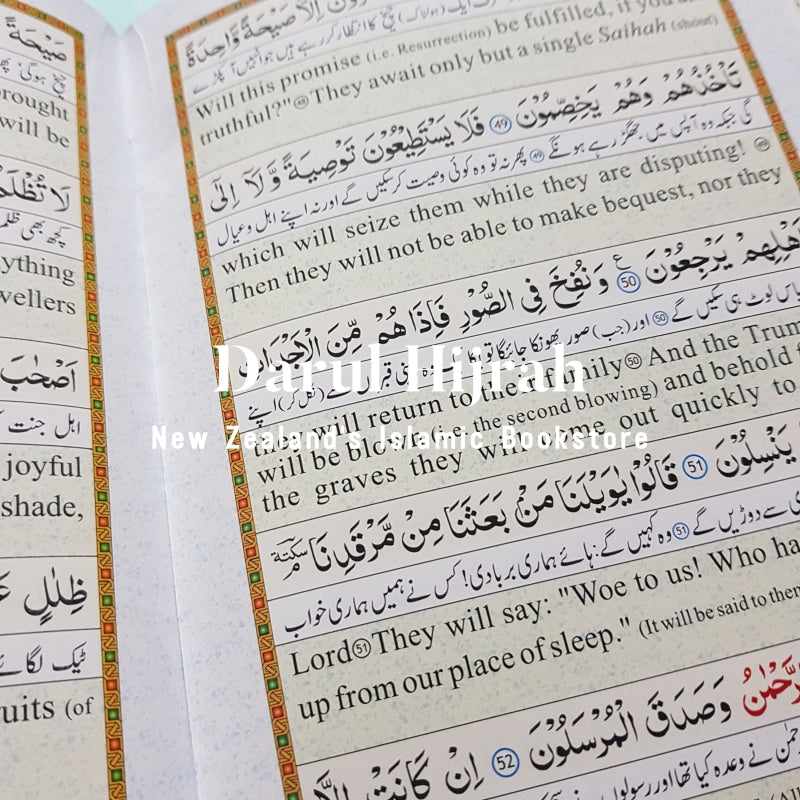 صَيْحَةً
rought
will be
لَا تُظْلَمُ
کچھ بھی ظلم
ything
wellers
اَصْحٰبَ
اہل جنت
joyful
shade,
ظِلٰلٍ
ٹیک لگائے
uits (of
اِلَّا صَيْحَةً وَّاحِدَةً
(ہولناک) چیخ کا انتظار کر رہے ہیں جو انہیں آ پکڑے
Will this promise (i.e. Resurrection) be fulfilled, if you
truthful?" 48 They await only but a single Saihah (shout)
تَاْخُذُهُمْ وَهُمْ يَخِصِّمُوْنَ 49 فَلَا يَسْتَطِيْعُوْنَ تَوْصِيَةً وَّلَآ اِلٰٓى
گی جبکہ وہ آپس میں جھگڑ رہے ہونگے 49 پھر نہ تو وہ کوئی وصیت کر سکیں گے اور نہ اپنے اہل و عیال
which will seize them while they are disputing! 49
Then they will not be able to make bequest, nor they
اَهْلِهِمْ يَرْجِعُوْنَ 50 وَنُفِخَ فِى الصُّوْرِ فَاِذَا هُمْ مِّنَ الْاَجْدَاثِ
لوٹ ہی سکیں گے 50 اور (جب) صور پھونکا جائے گا تو
Darul Hijrah
they will return to their family 50 And the Trum
New Zealand's Islamic Bookstore
will be blown (i.e. the second blowing) and behold f
the graves they will come out quickly to
يَنْسِلُوْنَ 51 قَالُوْا يٰوَيْلَنَا مَنْۢ بَعَثَنَا مِنْ مَّرْقَدِنَا سكتة
سے دوڑیں گے 51 وہ کہیں گے: ہائے ہماری بربادی! کس نے ہمیں ہماری خواب
Lord 51 They will say: "Woe to us! Who ha
up from our place of sleep." (It will be said to them
الرَّحْمٰنُ وَصَدَقَ الْمُرْسَلُوْنَ 52 اِنْ كَانَتْ اِلَّا
نے وعدہ کیا تھا اور رسولوں